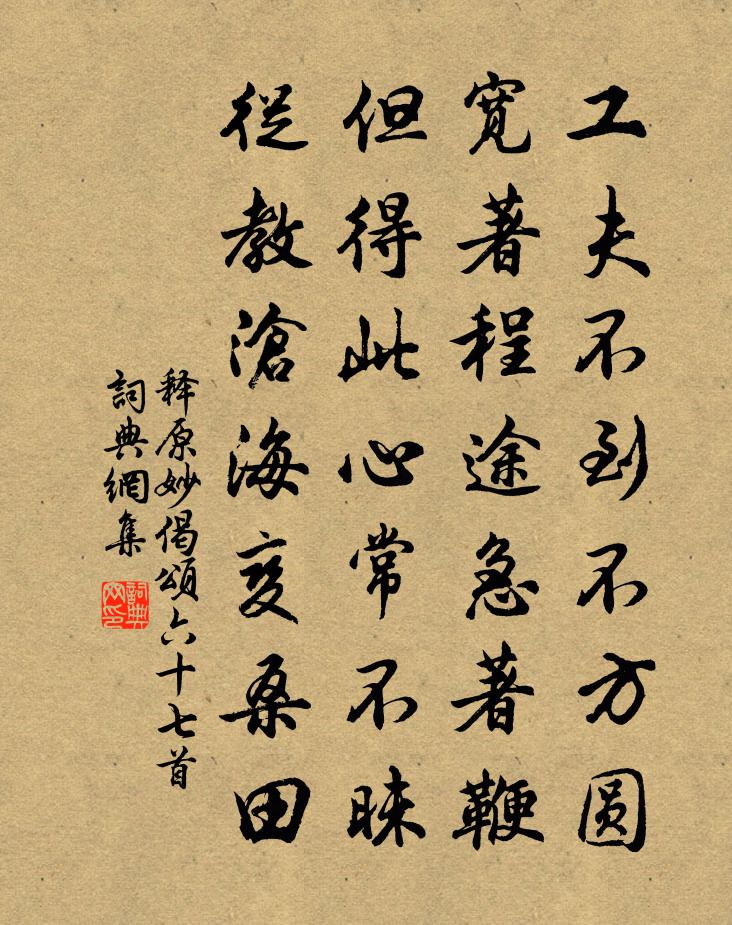 工夫不到不方圆
寛著程途急著鞭
但得此心常不昧
從教滄海变桑田
释原妙偈頌六十七首
詞典網集
詞典
网印